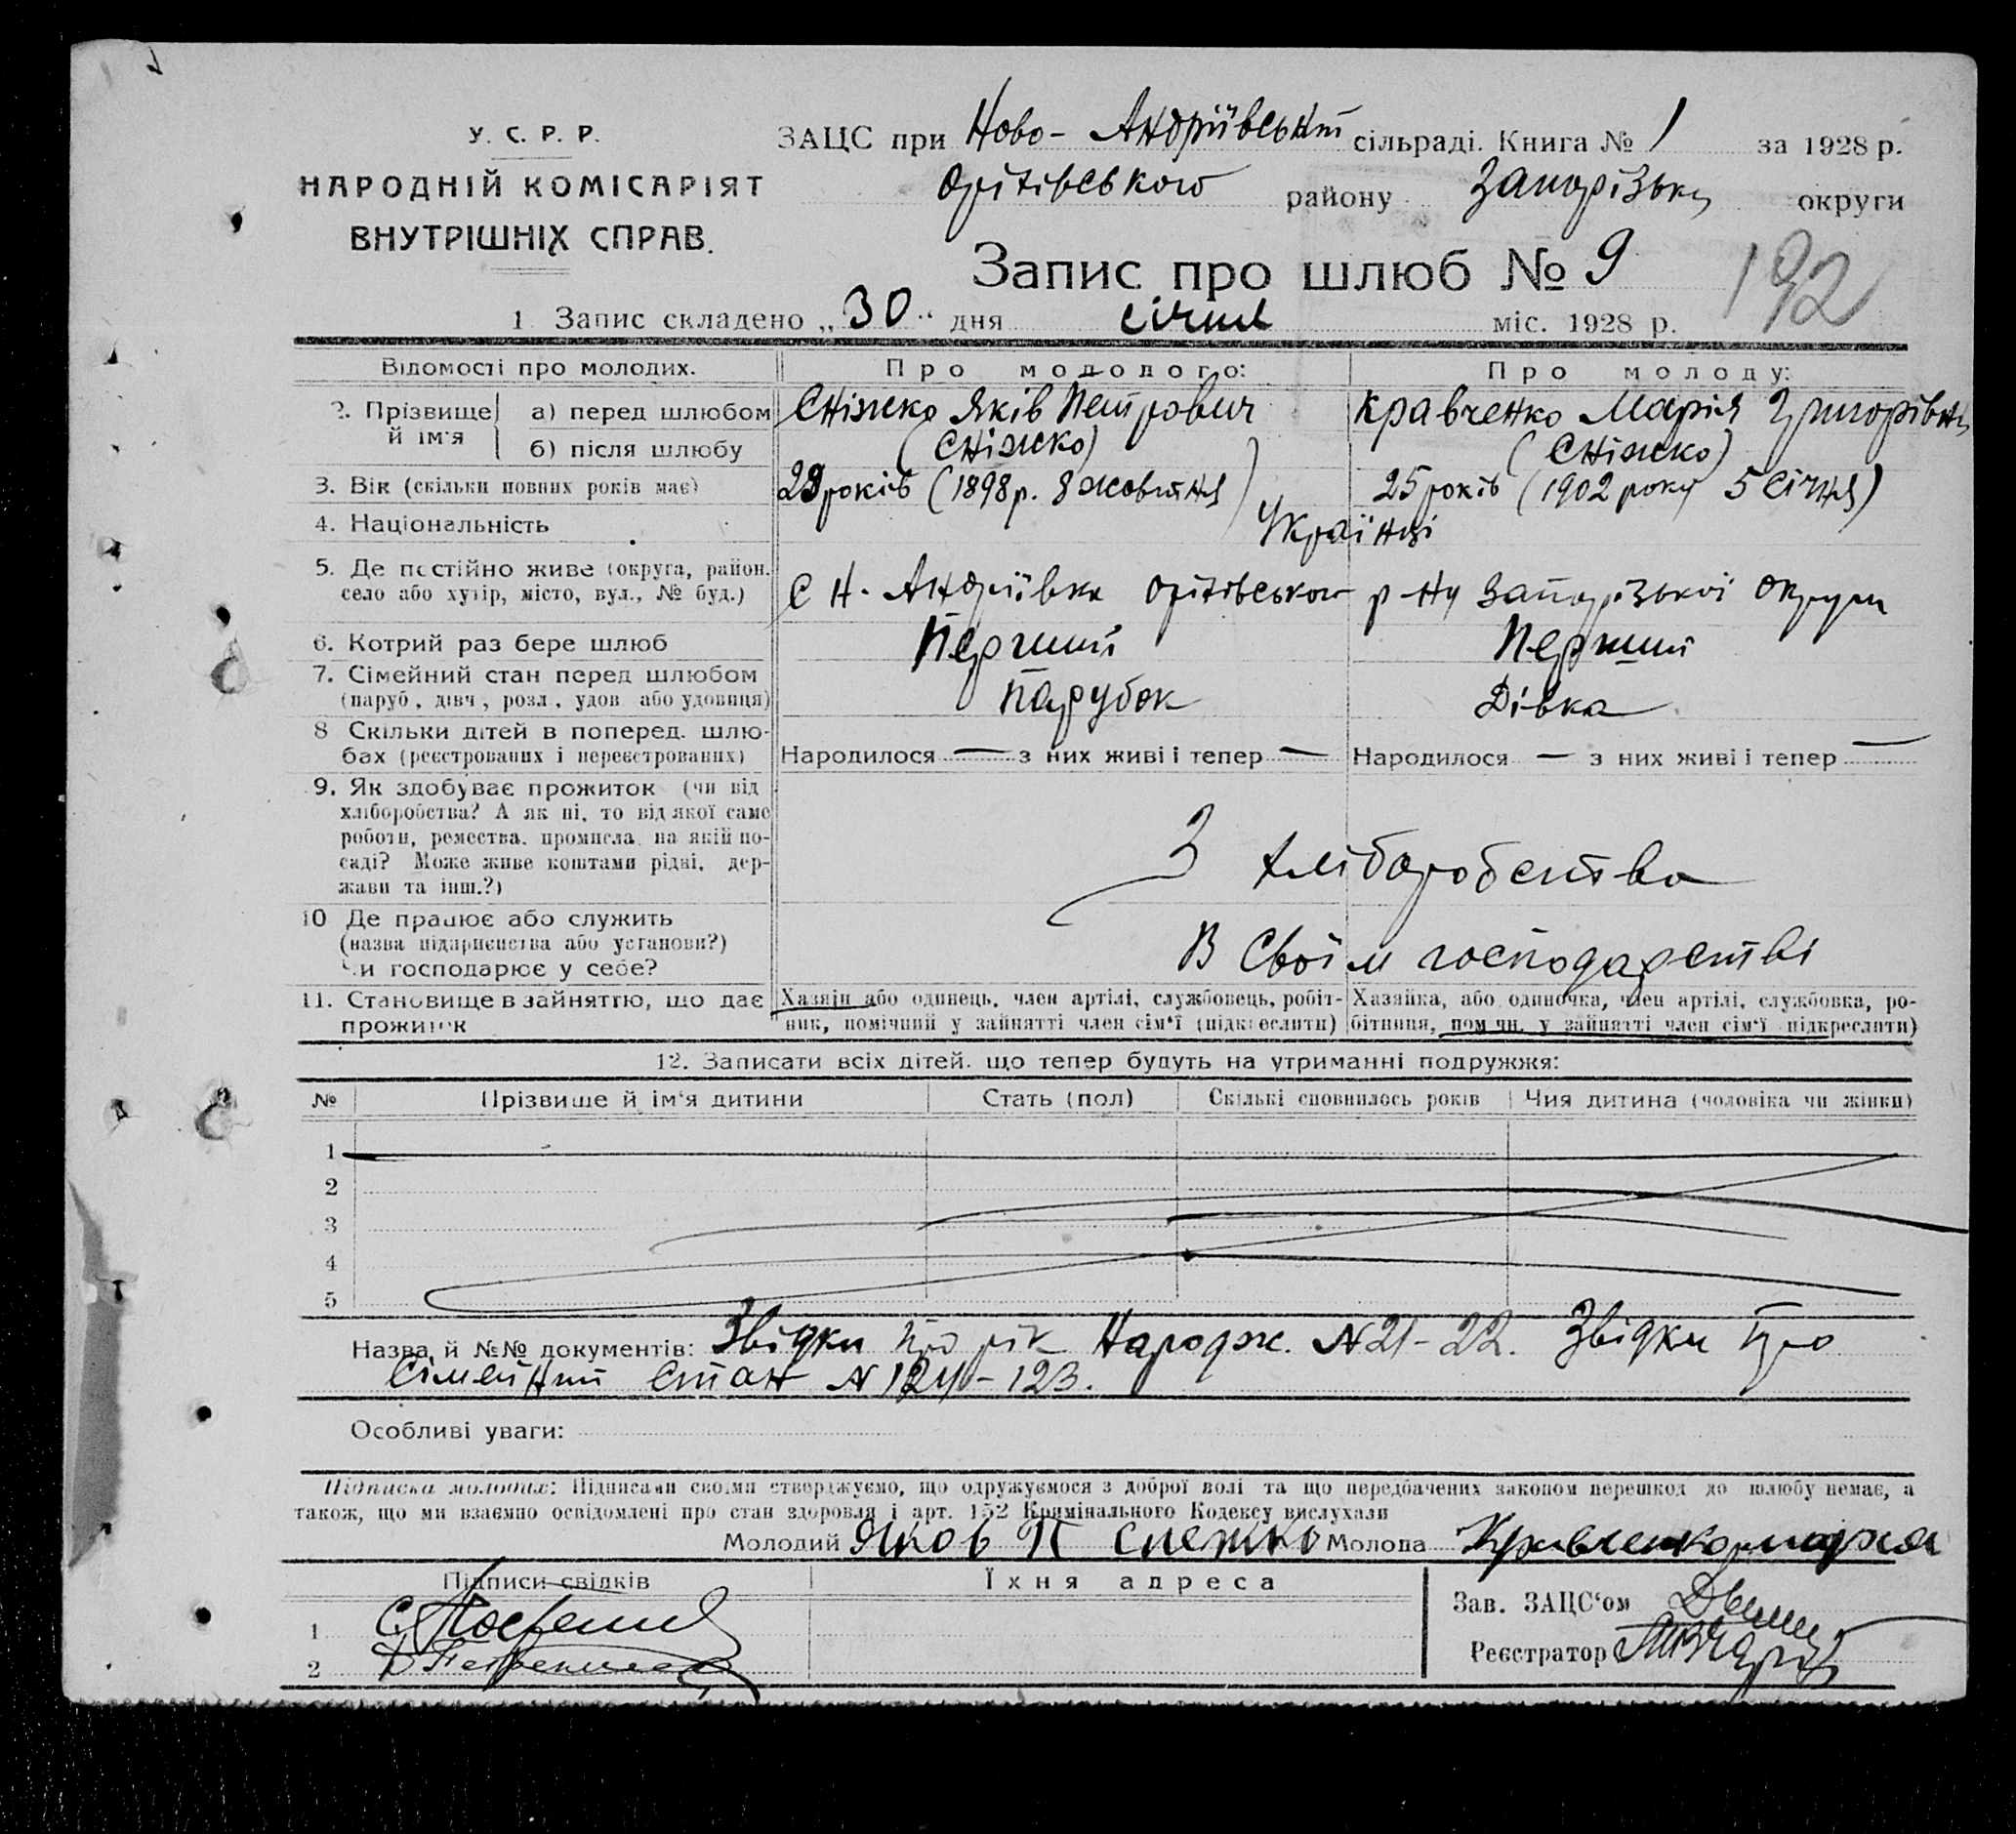 У. С. Р. Р.
НАРОДНІЙ КОМІСАРІЯТ
ВНУТРІШНІХ СПРАВ.
ЗАЦС при Ново-Андріївській сільраді. Книга № 1 за 1928 р.
Оріхівського району Запорізьк округи
Запис про шлюб № 9
192
1 Запис складено „30“ дня січня міс. 1928 р.
Відомості про молодих. Про молодого: Про молоду:
2. Прізвище й ім'я а) перед шлюбом Сніжко Яків Петрович Кравченко Марія Григорівна
б) після шлюбу (Сніжко) (Сніжко)
3. Вік (скільки повних років має) 29 років (1898 р. 8 жовтня) 25 років (1902 року 5 січня)
4. Національність Українці
5. Де постійно живе (округа, район, село або хутір, місто, вул., № буд.) С Н. Андріївка Оріхівського р-ну Запорізької округи
6. Котрий раз бере шлюб Перший Перший
7. Сімейний стан перед шлюбом (паруб, дівч, розл, удов або удовиця) Парубок Дівка
8 Скільки дітей в поперед. шлюбах (реєстрованих і нереєстрованих) Народилося — з них живі і тепер — Народилося — з них живі і тепер —
9. Як здобуває прожиток (чи від
хліборобства? А як ні, то від якої саме
роботи, ремества, промисла, на якій по-
саді? Може живе коштами рідні, дер-
жави та інш.?) З хліборобства
10 Де працює або служить
(назва підприємства або установи?)
Чи господарює у себе? В своїм господарстві
11. Становище в зайняттю, що дає прожиток
Хазяїн або одинець, член артілі, службовець, робіт-
ник, помічний у зайнятті член сім'ї (підкреслити)
Хазяйка, або одиночка, член артілі, службовка, ро-
бітниця, помічн. у зайнятті член сім'ї підкреслити)
12. Записати всіх дітей, що тепер будуть на утриманні подружжя:
№ Прізвище й ім'я дитини Стать (пол) Скількі сповнилось років Чия дитина (чоловіка чи жінки)
1
2
3
4
5
Назва й №№ документів: Звідки про рік Народж. № 21-22. Звідки про
сімейний стан № 124-123.
Особливі уваги:
Підписка молодих: Підписами своїми стверджуємо, що одружуємося з доброї волі та що передбачених законом перешкод до шлюбу немає, а
також, що ми взаємно освідомлені про стан здоровля і арт. 152 Кримінального Кодексу вислухали
Молодий Яков П Снежко Молода Кравченко мария
Підписи свідків Їхня адреса
1
2
Зав. ЗАЦС'ом
Реєстратор